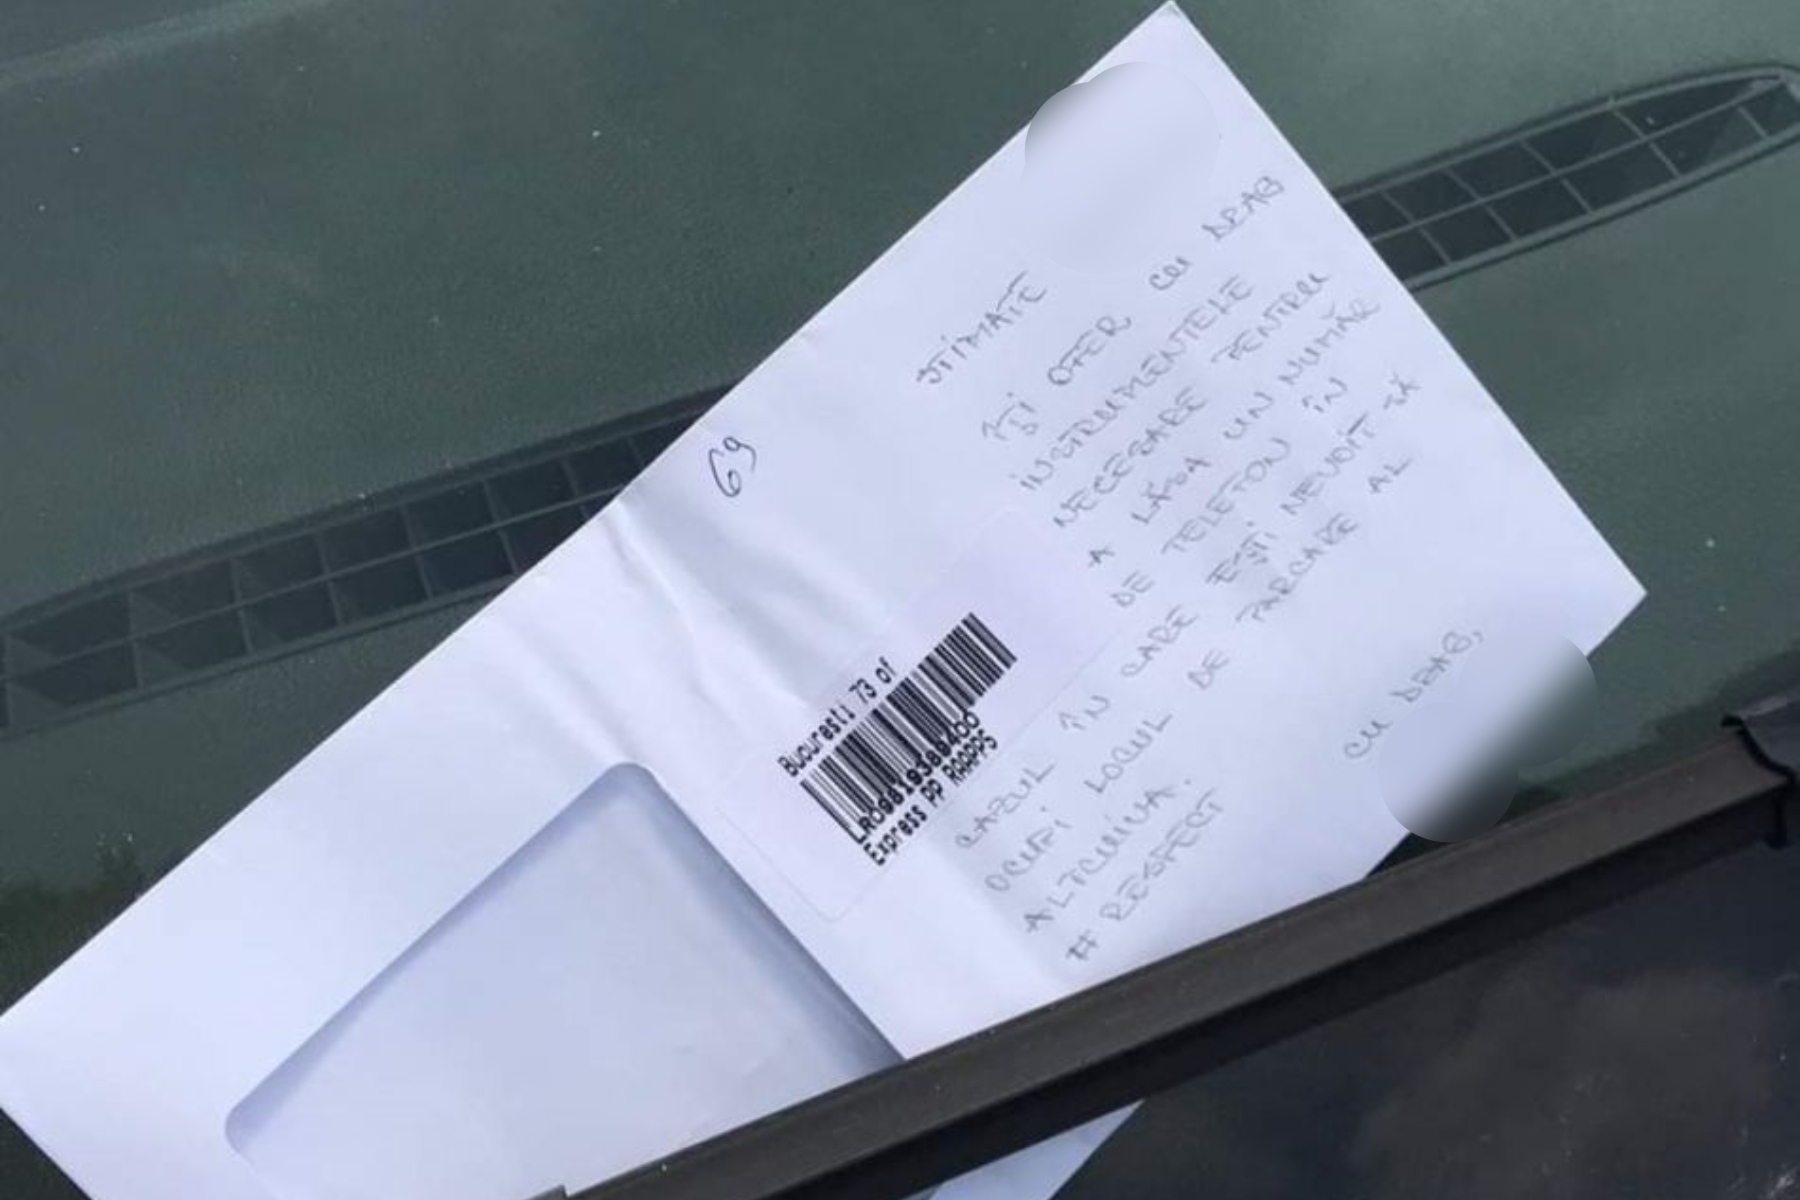 STIMATE
ÎȚI OFER CU DRAG
INSTRUMENTELE
NECESARE PENTRU
A LĂSA UN NUMĂR
DE TELEFON ÎN
CAZUL ÎN CARE EȘTI NEVOIT SĂ
OCUPI LOCUL DE PARCARE AL
ALTCUIVA.
# RESPECT
CU DRAG,
69
Bucuresti 73 of
Express PP RAAPPS